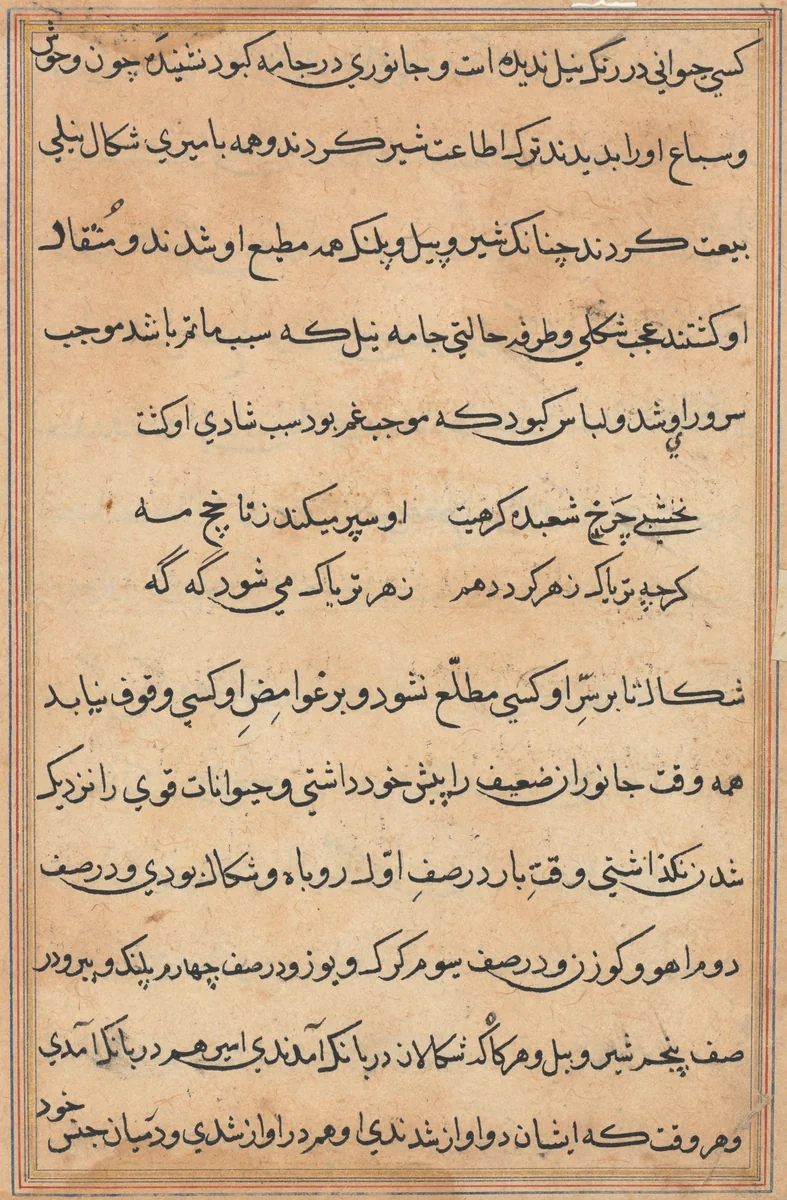 کسي حیواني در رنک نیل ندیده است و جانوري در جامه کبود نشنیده چون وحوش
و سباع او را بدیدند ترک اطاعت شیر کردند و همه با میري شکال نیلي
بیعت کردند چنانک شیر و پیل و پلنک همه مطیع او شدند و مُنْقاد
او کشتند عجب شکلي و طرفه حالتي جامه نیل که سبب ماتم باشد موجب
سروراوي شد و لباس کبود که موجب غم بود سبب شادي او کشت
نخشبي چَرخ شعبده کرهیت او سپر میکند ز تا نخ مه
کرچه تریاک زهر کردد هم زهر تریاک مي شود گَه گَه
شکال تا بر سِرِّ او کسي مطلّع نشود و بر غوامِضِ او کسي وقوف نیابد
همه وقت جانوران ضعیف را پیش خود داشتي و حیوانات قوي را نزدیک
شدن نکذاشتي وقتِ بار در صفِ اوّل روباه و شکال بودي و در صف
دوم اهو و کوزن و در صف سوم کرک و یوز و در صف چهارم پلنک و ببر و در
صف پنجم شیر و پیل و هرکاْه که شکالان در بانک آمدندي امیر هم در بانک آمدي
و هر وقت که ایشان دواواز شدندي او هم در اواز شدي و در میان جنس خود